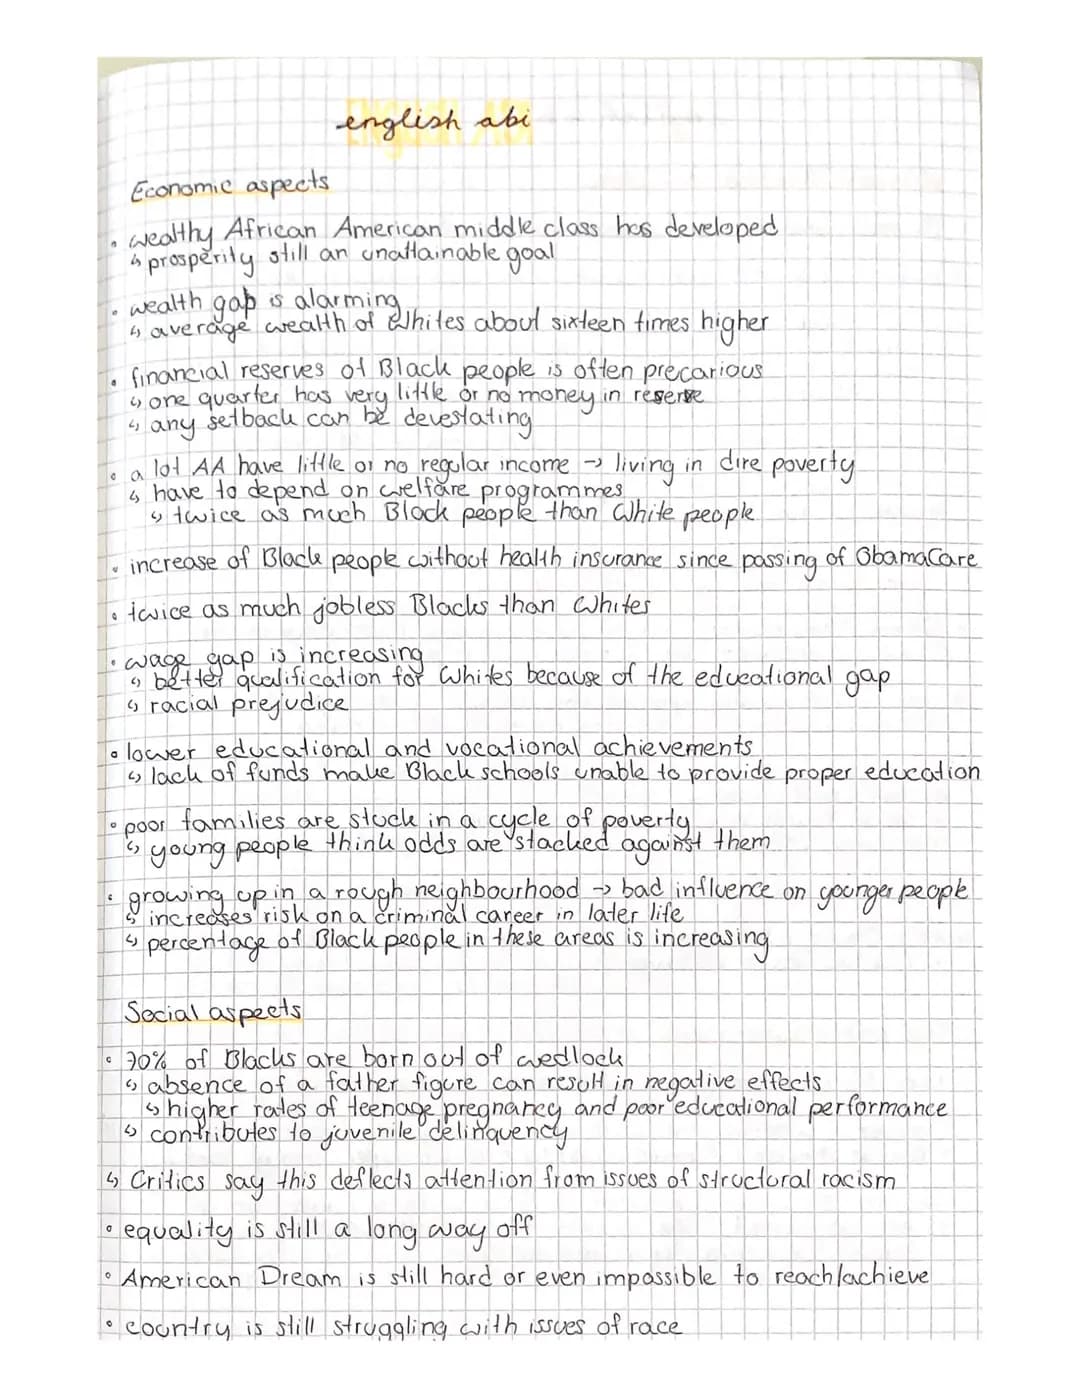 english abi
Economic aspects
• wealthy African American middle class has developed
↳ prosperity still an unattainable goal
• wealth gap is alarming
↳ average wealth of Whites about sixteen times higher
• financial reserves of Black people is often precarious
↳ one quarter has very little or no money in reserve
↳ any setback can be devestating
• a lot AA have little or no regular income → living in dire poverty
↳ have to depend on welfare programmes
↳ twice as much Black people than White people
• increase of Black people without health insurance since passing of ObamaCare
• twice as much jobless Blacks than Whites
• wage gap is increasing
↳ better qualification for Whites because of the educational gap
↳ racial prejudice
• lower educational and vocational achievements
↳ lack of funds make Black schools unable to provide proper education
• poor families are stuck in a cycle of poverty
↳ young people think odds are stacked against them
• growing up in a rough neighbourhood → bad influence on younger people
↳ increases risk on a criminal career in later life
↳ percentage of Black people in these areas is increasing
Social aspects
• 70% of Blacks are born out of wedlock
↳ absence of a father figure can result in negative effects
↳ higher rates of teenage pregnancy and poor educational performance
↳ contributes to juvenile delinquency
↳ Critics say this deflects attention from issues of structural racism
• equality is still a long way off
• American Dream is still hard or even impossible to reach/achieve
• country is still struggling with issues of race